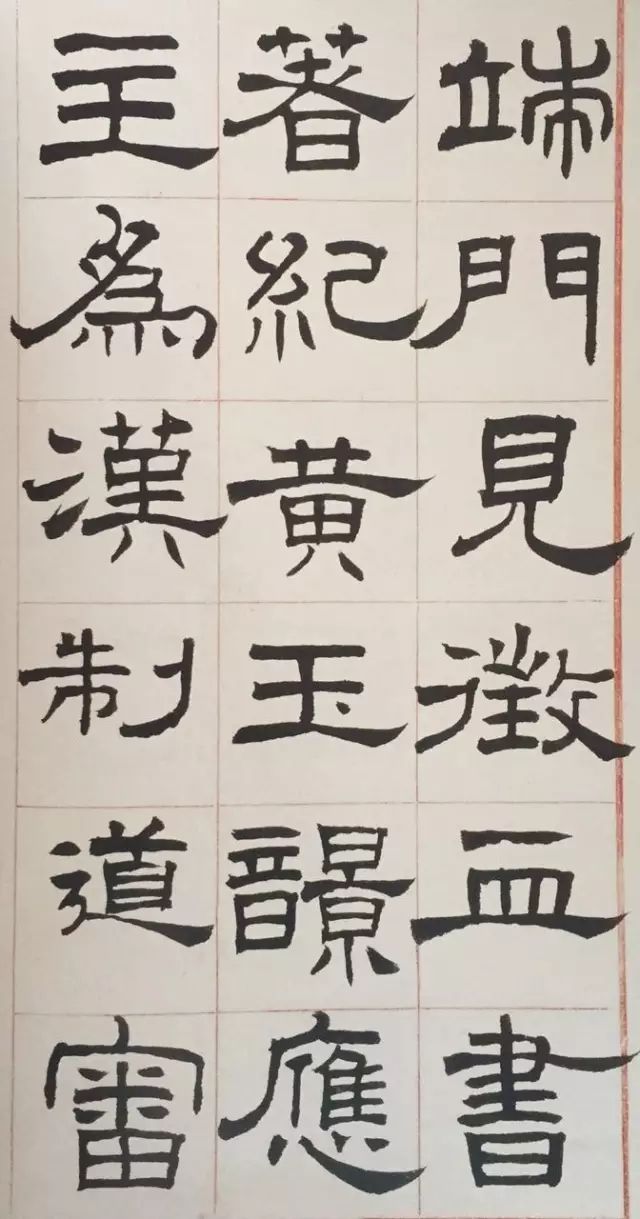 端門見徵血書
著紀黃玉䪫應
主為漢制道審